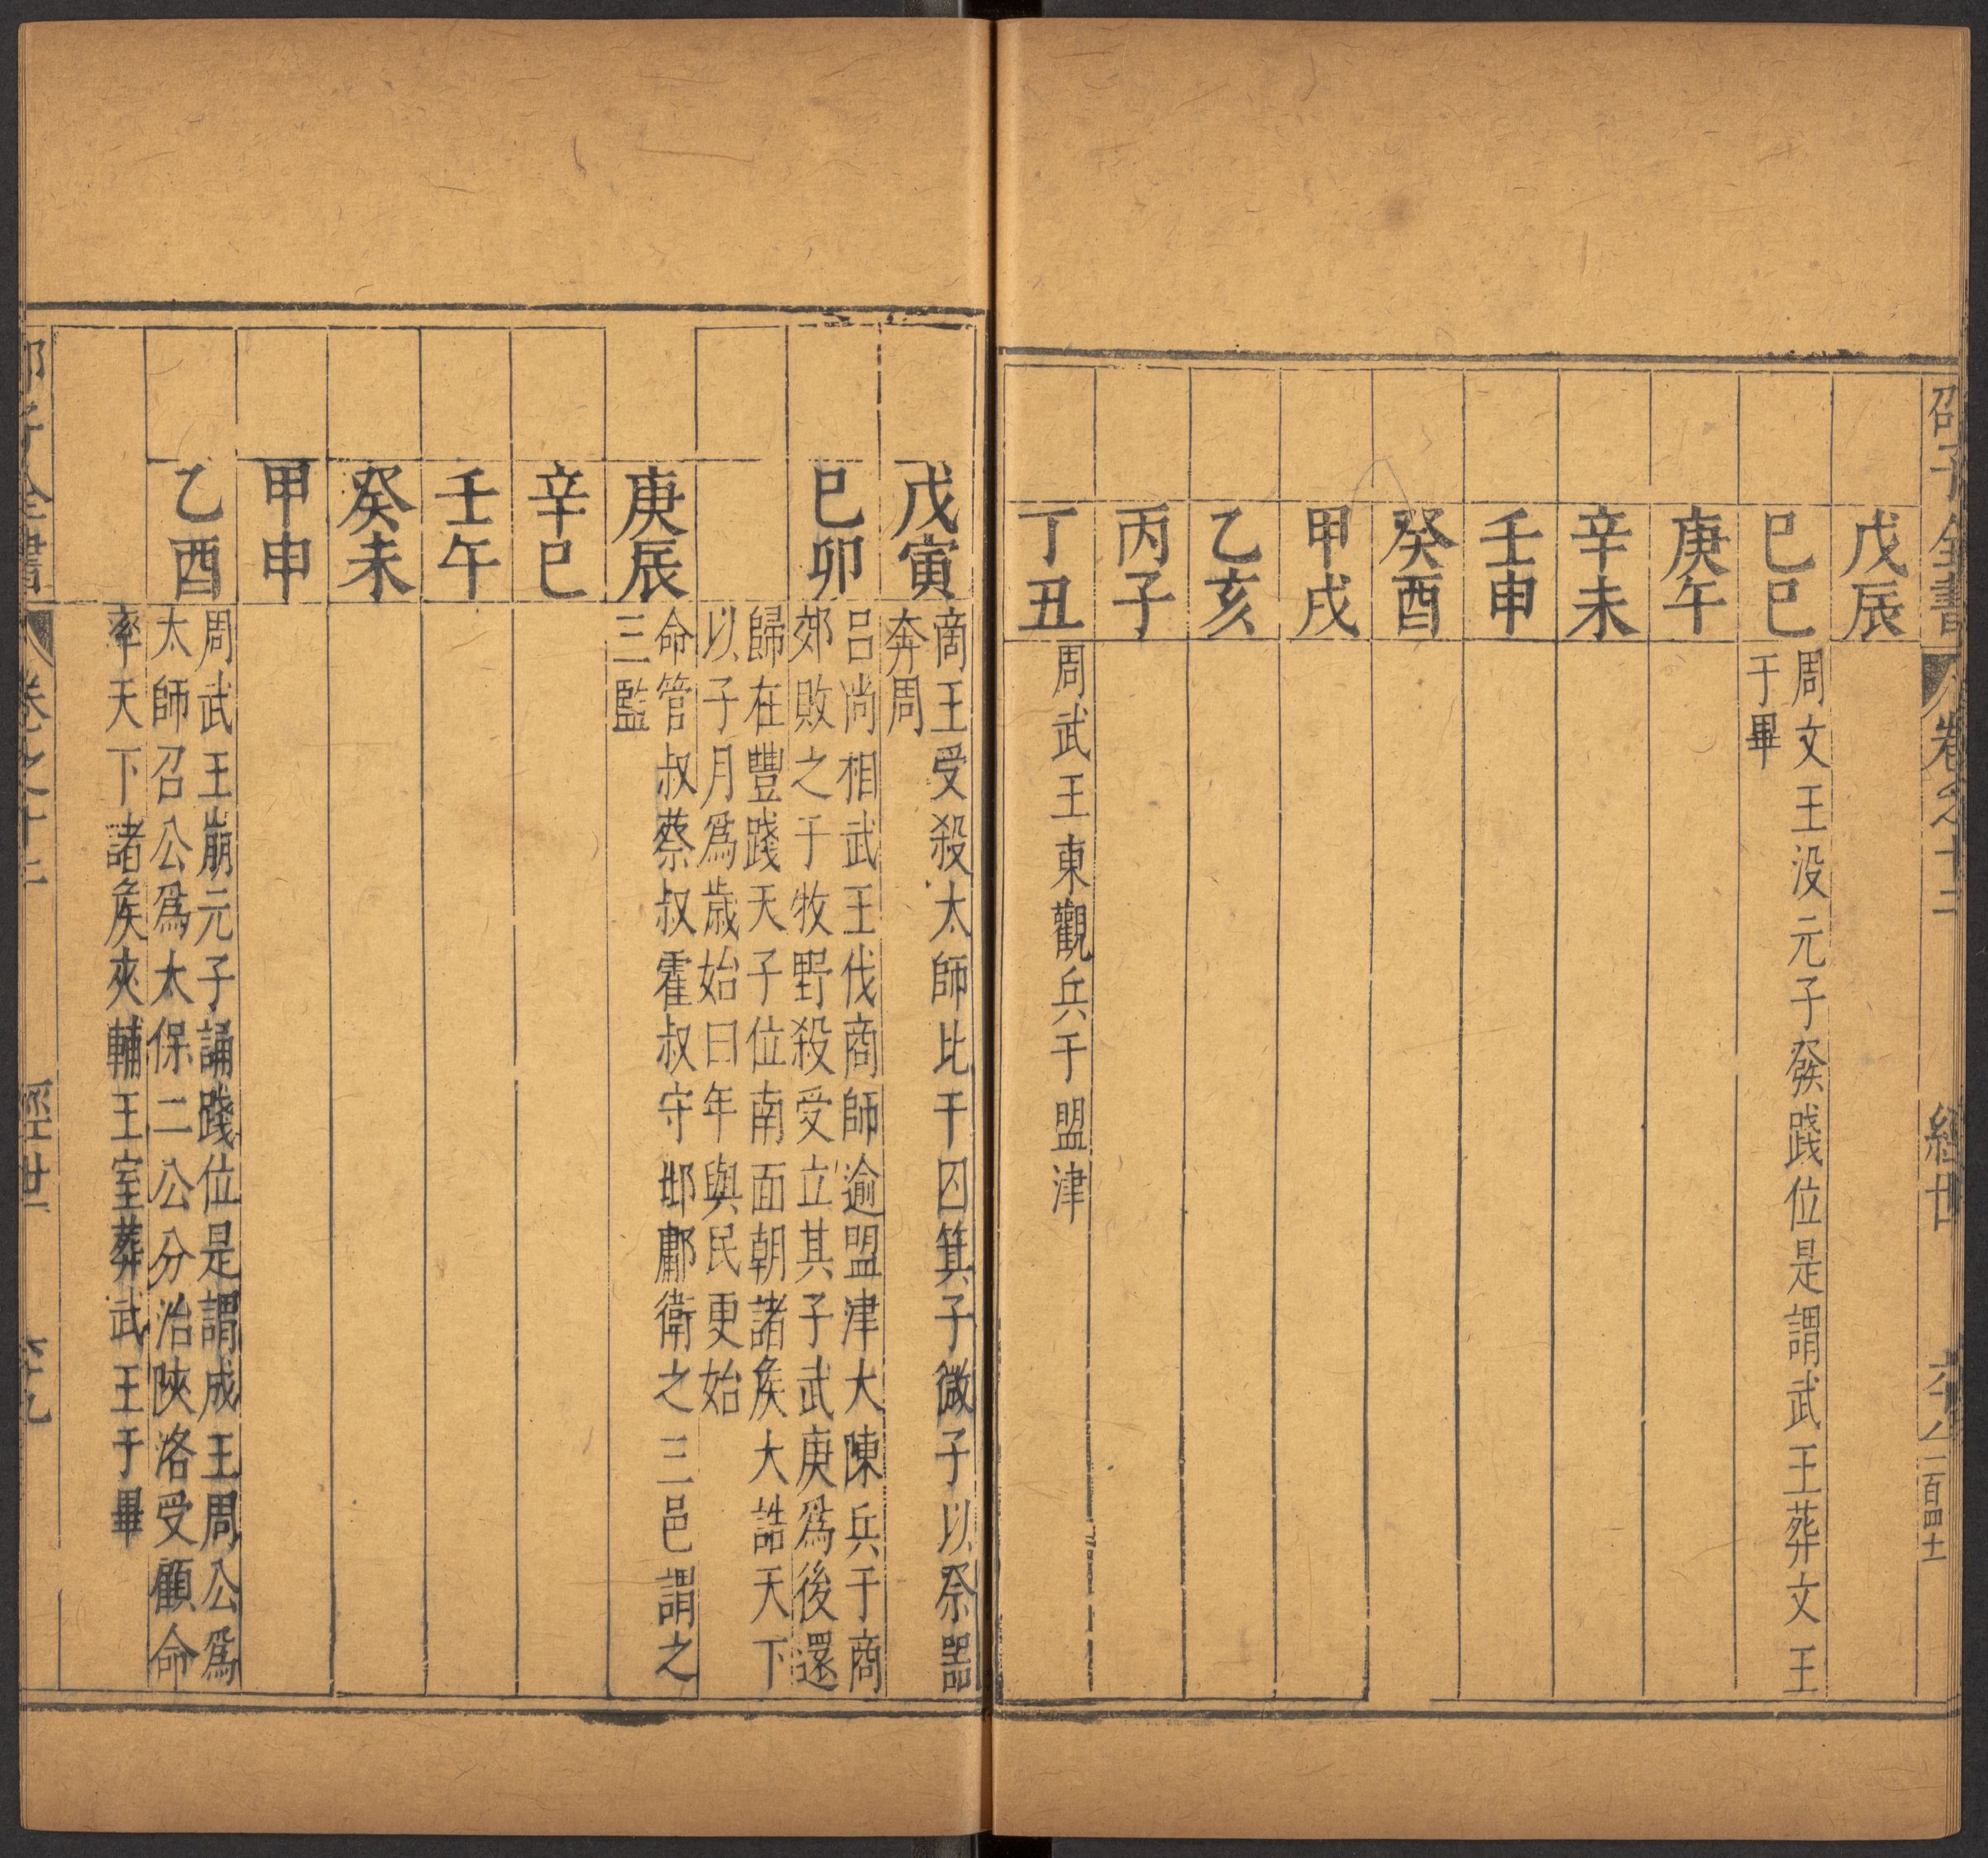 邵子全書 卷之十二 經世
戊辰
己巳
周文王没元子發踐位是謂武王葬文王
于畢
庚午
辛未
壬申
癸酉
甲戌
乙亥
丙子
丁丑
周武王東觀兵于盟津
戊寅
商王受殺太師比干囚箕子微子以祭器
奔周
己卯
吕尚相武王伐商師逾盟津大陳兵于商
郊敗之于牧野殺受立其子武庚爲後還
歸在豐踐天子位南面朝諸侯大誥天下
以子月爲歲始曰年與民更始
庚辰
命管叔蔡叔霍叔守邶鄘衛之三邑謂之
三監
辛巳
壬午
癸未
甲申
乙酉
周武王崩元子誦踐位是謂成王周公爲
太師召公爲太保二公分治陝洛受顧命
率天下諸侯夾輔王室葬武王于畢
子全書 卷之十二 經世